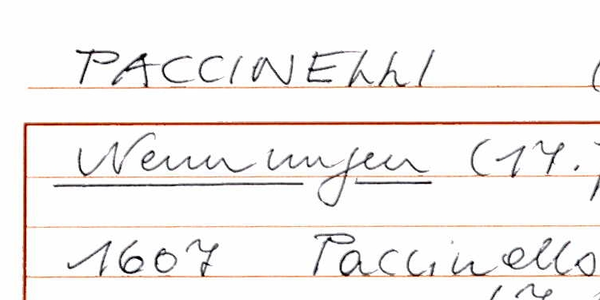 PACCINELLI (
Nennungen (17.
1607 Paccinello